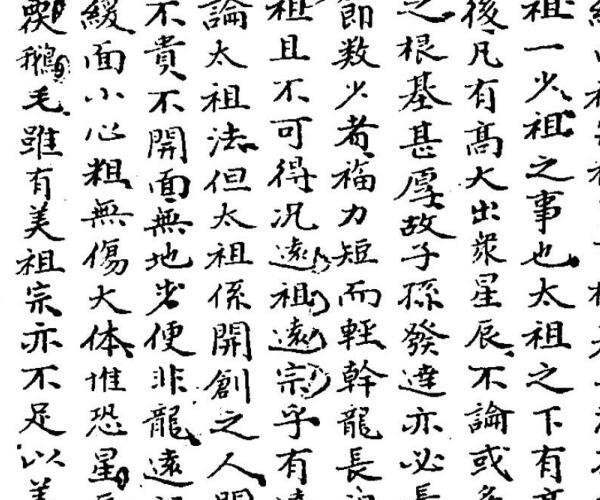 祖一少祖之事也太祖之下有高
後凡有高大出衆星辰不論或多
之根基甚厚故子孫發達亦必長
即数少者福力短而輕幹龍長
祖且不可得况遠祖遠宗乎有遠
論太祖法但太祖係開創之人開
不貴不開面無地步便非龍遠祖
緩面小心粗無傷大体惟恐星辰
鵝毛雖有美祖宗亦不足以美